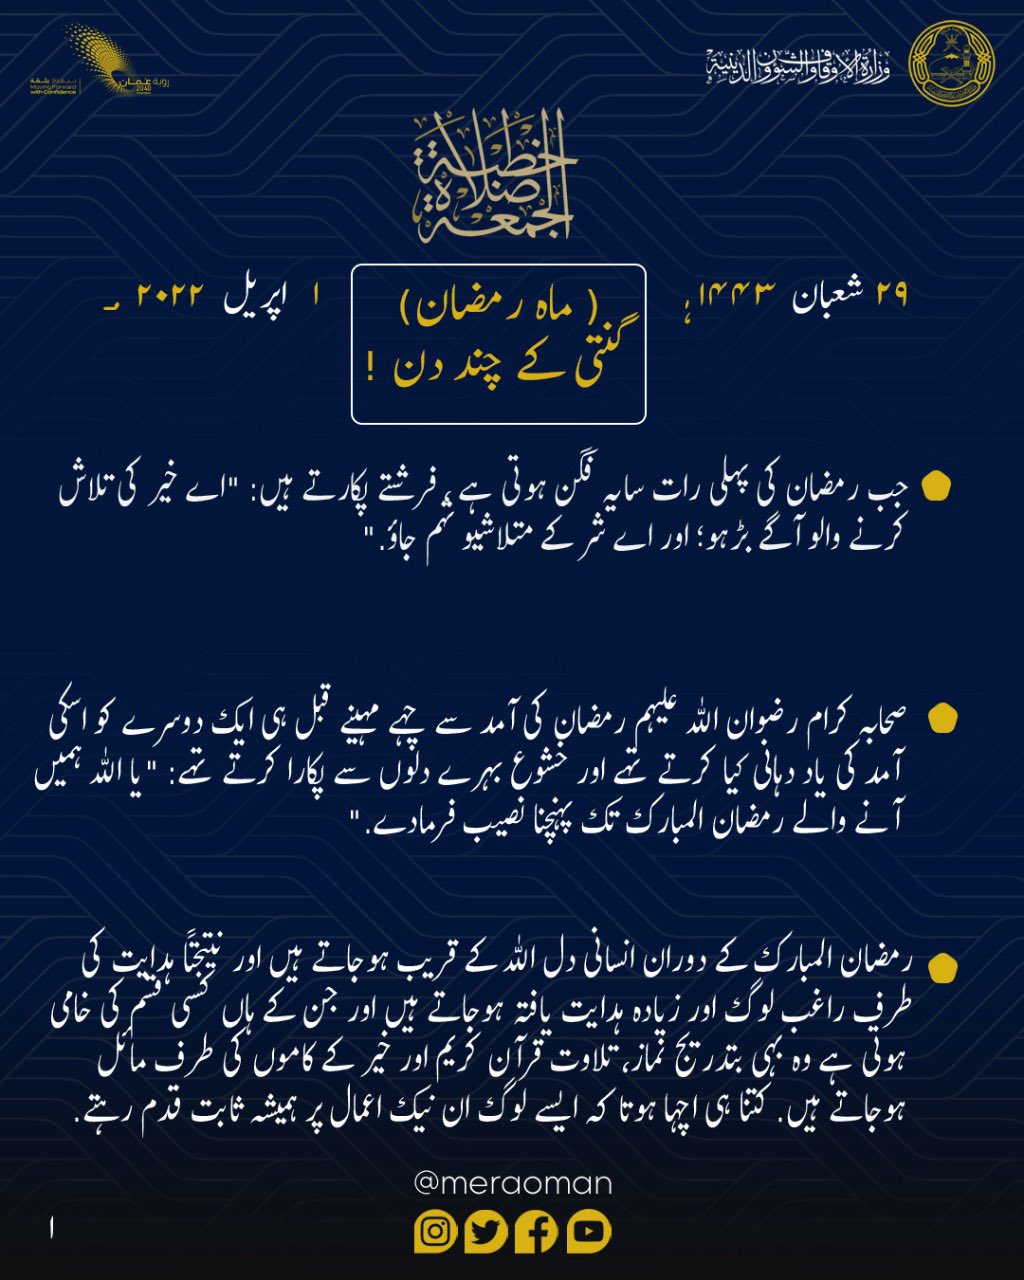 رؤية عُمان
2040
نتقدم بثقة
Moving Forward
with Confidence
وزارة الأوقاف والشؤون الدينية
خطبة
صلاة
الجمعة
٢٩ شعبان ١٤٤٣ ہ
( ماہ رمضان)
گنتی کے چند دن !
١ اپریل ٢٠٢٢ ـ
جب رمضان کی پہلی رات سایہ فگن ہوتی ہے ، فرشتے پکارتے ہیں: "اے خیر کی تلاش
کرنے والو آگے بڑہو؛ اور اے شر کے متلاشیو تہم جاؤ."
صحابہ کرام رضوان اللہ علیہم رمضان کی آمد سے چہے مہینے قبل ہی ایک دوسرے کو اسکی
آمد کی یاد دہانی کیا کرتے تہے اور خشوع بہرے دلوں سے پکارا کرتے تہے: "یا اللہ ہمیں
آنے والے رمضان المبارک تک پہنچنا نصیب فرمادے."
رمضان المبارک کے دوران انسانی دل اللہ کے قریب ہوجاتے ہیں اور نتیجتًا ہدایت کی
طرف راغب لوگ اور زیادہ ہدایت یافتہ ہوجاتے ہیں اور جن کے ہاں کسی قسم کی خامی
ہوتی ہے وہ بہی بتدریج نماز، تلاوت قرآن کریم اور خیر کے کاموں کی طرف مائل
ہوجاتے ہیں. کتنا ہی اچہا ہوتا کہ ایسے لوگ ان نیک اعمال پر ہمیشہ ثابت قدم رہتے.
@meraoman
١